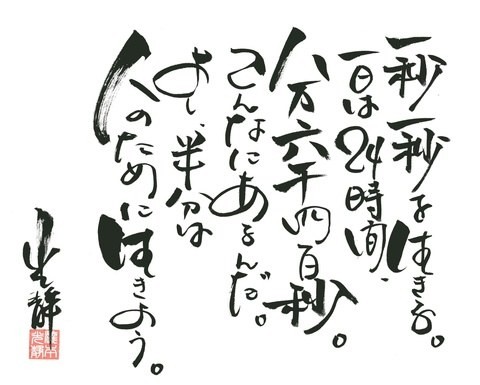 一秒一秒を生きる。
一日は24時間、
八万六千四百秒。
こんなにあるんだ。
よし、半分は
人のために生きよう。